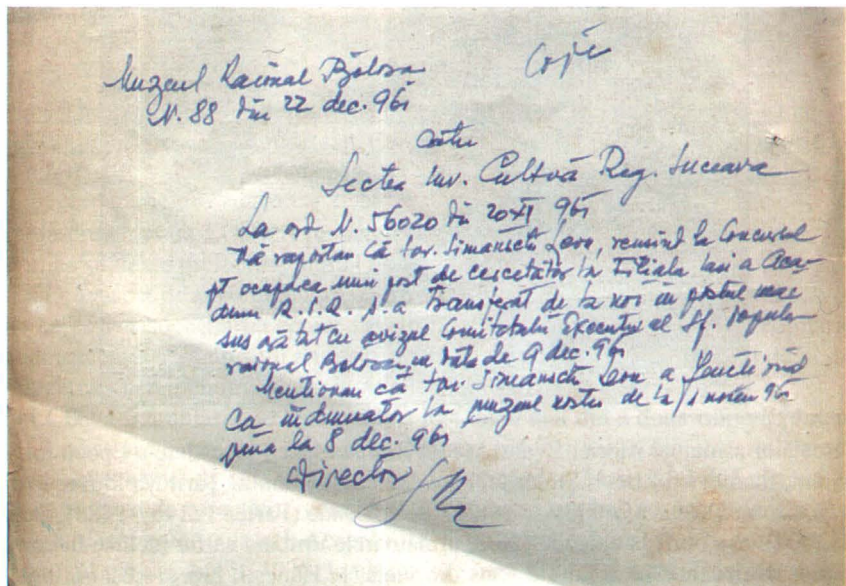 Copie
Muzeul Raional Fălticeni
N. 88 din 22 dec. 961
Către
Secția Înv. Cultură Reg. Suceava
La ord. N. 56020 din 20 XI 961
Vă raportăm că tov. Simanschi Leon, reușind la Concursul
pt ocuparea unui post de cercetător la Filiala Iași a Aca-
demiei s-a transferat de la noi în postul mai
sus arătat cu avizul Comitetului Executiv al Sf. Popular
raional în data de 9 dec. 961
Menționăm că tov. Simanschi Leon a funcționat
ca îndrumător la muzeul nostru de la 1 noem 961
pînă la 8 dec. 961
Director